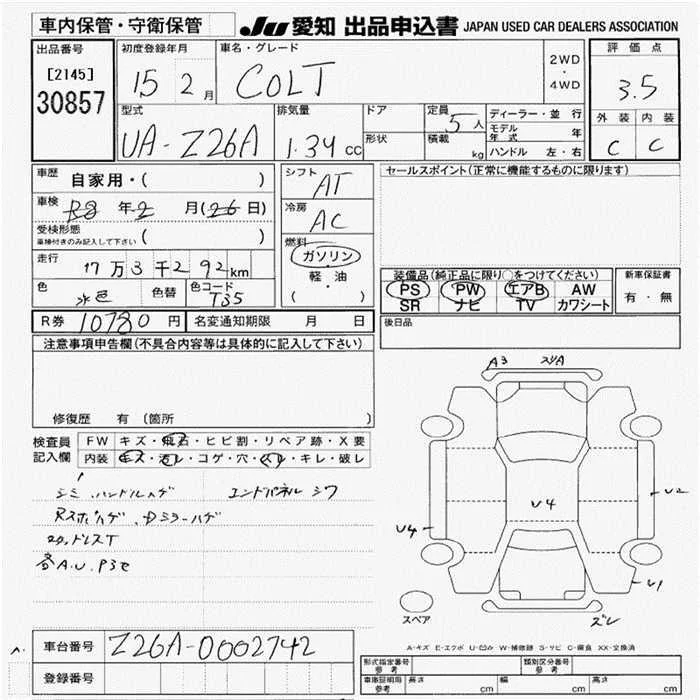 車内保管・守衛保管
JU 愛知 出品申込書 JAPAN USED CAR DEALERS ASSOCIATION
出品番号
[2145]
30857
初度登録年月
15 2 月
車名・グレード
COLT
2WD
・
4WD
評価点
3.5
外装 内装
C C
型式
UA-Z26A
排気量
1.34 cc
ドア
形状
定員
5人
積載
kg
ディーラー・並行
モデル年式 年
ハンドル 左・右
車歴
自家用・( )
車検
R8 年 2 月(26日)
受検形態
車検付きのみ記入して下さい ( )
走行
17万3千292km
色
水色
色替
色コード
T35
シフト
AT
冷房
AC
燃料
ガソリン
軽・油
( )
セールスポイント(正常に機能するものに限ります)
装備品(純正品に限り○をつけてください)
PS PW エアB AW
SR ナビ TV カワシート
新車保証書
有・無
R券 10780 円
名変通知期限 月 日
後日品
注意事項申告欄(不具合内容等は具体的に記入して下さい)
修復歴 有 (箇所 )
検査員
記入欄
FW キズ・飛石・ヒビ割・リペア跡・X要
内装 キズ・汚レ・コゲ・穴・スレ・キレ・破レ
シミ、ハンドルハゲ エンドパネルシワ
Rスポハゲ、Dミラーハゲ
各A.U.P3モ
A3 スリA
U4
U2
U4
U1
ズレ
スペア
A-キズ E-エクボ U-凹み W-補修跡 S-サビ C-腐食 XX-交換済
車台番号
Z26A-0002742
登録番号
形式指定番号
参考
類別区分番号
参考
車庫証明用
参考
長さ cm 幅 cm 高さ cm